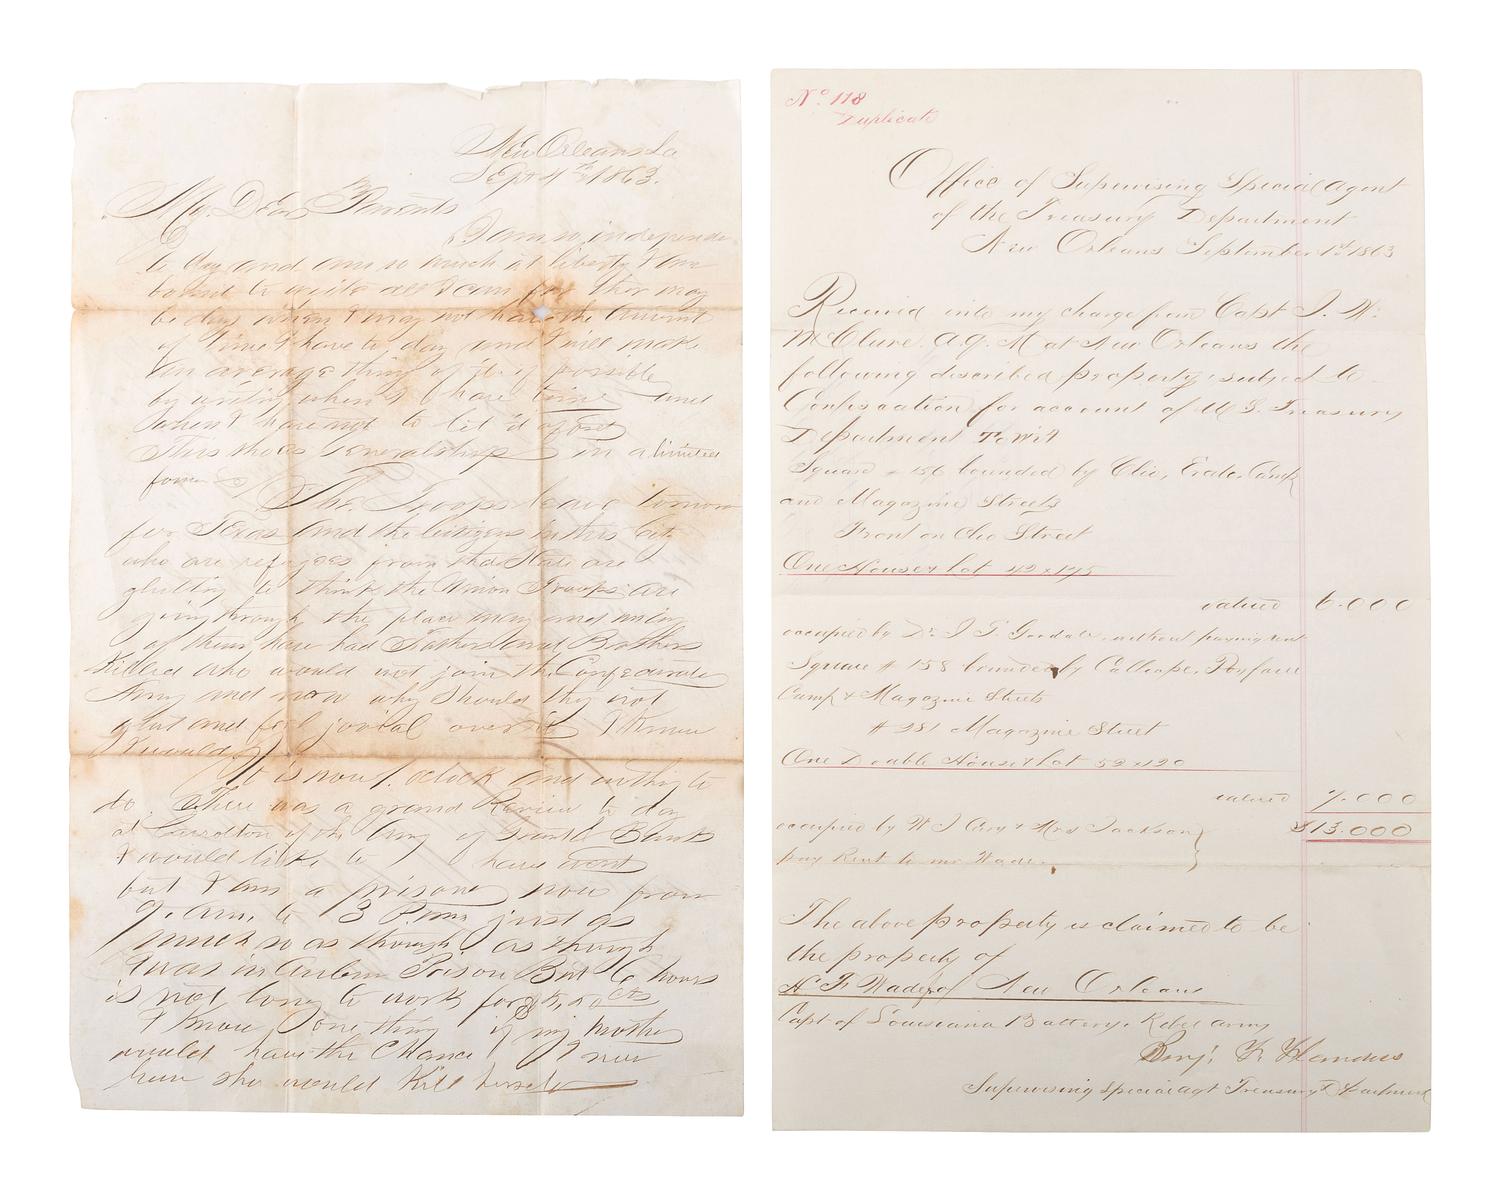 New Orleans La
Sept 4th 1863.
My Dear Parents
I am so independe
to day and am so much at liberty I am
bound to write all I can for ther may
be days when I may not have the amount
of time I have to day and I will make
an average thing of it if possible
by writing when I have time and
when I have not to let it
This shows Generalship in a limited
form
The Troops leave tomorow
for Texas and the Citizens in this City
who are refugees from that State are
glutting to think the Union Troops are
going through the place many and many
of them have had Fathers and Brothers
Killed who would not join the Confederate
Army and now why should they not
glut and feel jovial over it I know
I would
It is now 1. oclock and nothing to
do. There was a grand Review to day
at Carrolton of the Army of Grant & Banks
I would like to have went
but I am a prisoner now from
9. am. to 3 P.m. just as
much so as though as though
I was in Auburn Prison But 6 hours
is not long to work for
I know one thing if my mother
would have the Chance I now
have she would Kill herself
No. 118
Duplicate
Office of Supervising Special Agent
of the Treasury Department
New Orleans September 1st 1863
Received into my charge from Capt J. W.
McClure. A.Q.M at New Orleans the
following described property, subject to
Confiscation for account of U S. Treasury
Department To Wit
Square # 156 bounded by Clio, Erato, Camp
and Magazine Streets
Front on Clio Street
One House & Lot 42 x 175
valued 6.000
occupied by Dr. J. T. without paying rent
Square # 158 bounded by Calliope, Poyfarre
Camp & Magazine Streets
# 281 Magazine Street
One Double House & Lot 52 x 120
valued 7.000
occupied by W J & Mrs Jackson } $13.000
pay Rent to Mr Wade.
The above property is claimed to be
the property of
H. F. Wade, of New Orleans
Capt of Louisiana Battery. Rebel army
Benj. F. Flanders
Supervising Special Agt Treasury Department